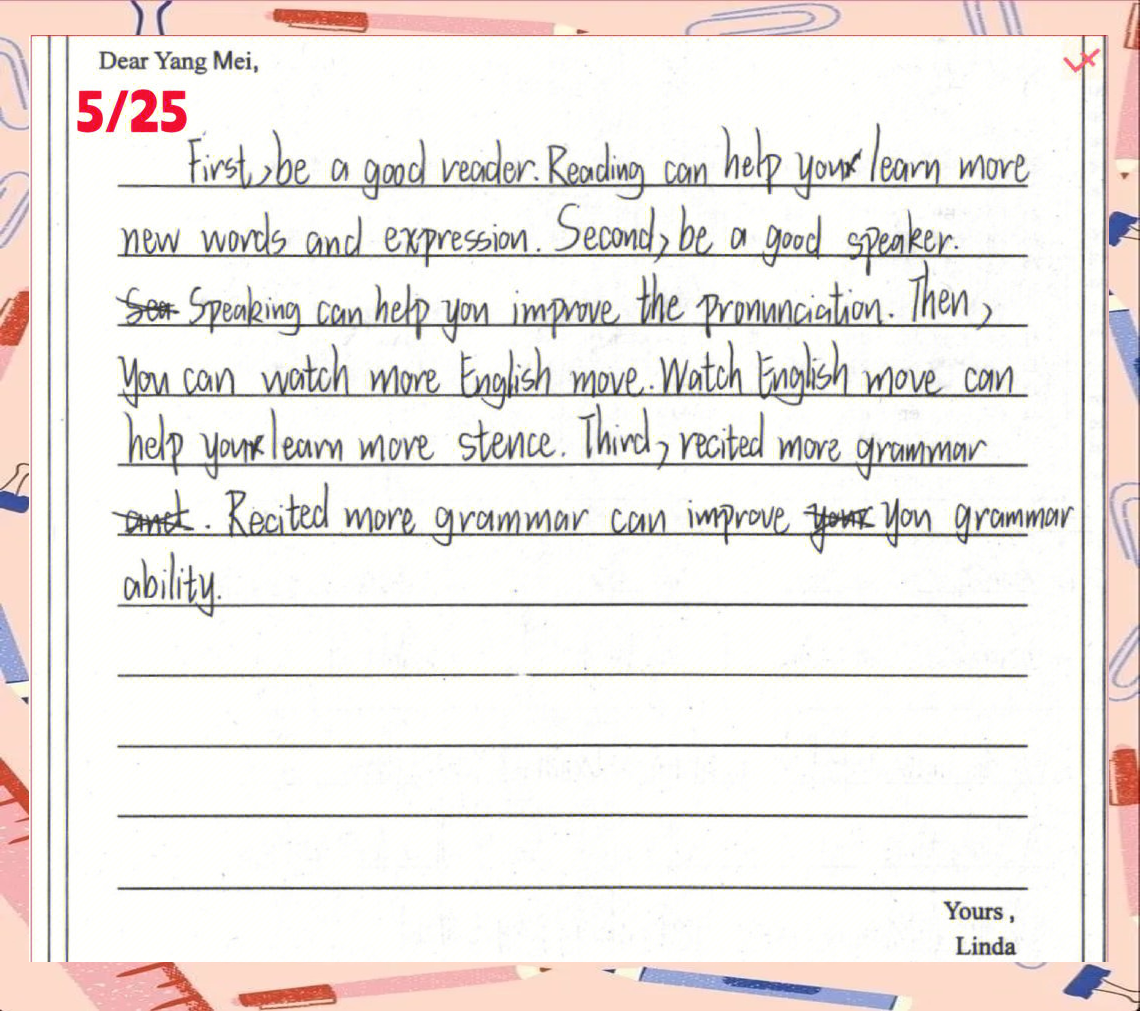 Dear Yang Mei,
5/25
First, be a good reader. Reading can help you learn more
new words and expression. Second, be a good speaker.
Speaking can help you improve the pronunciation. Then,
You can watch more English move. Watch English move can
help you learn more stence. Third, recited more grammar
. Recited more grammar can improve you grammar
ability.
Yours,
Linda